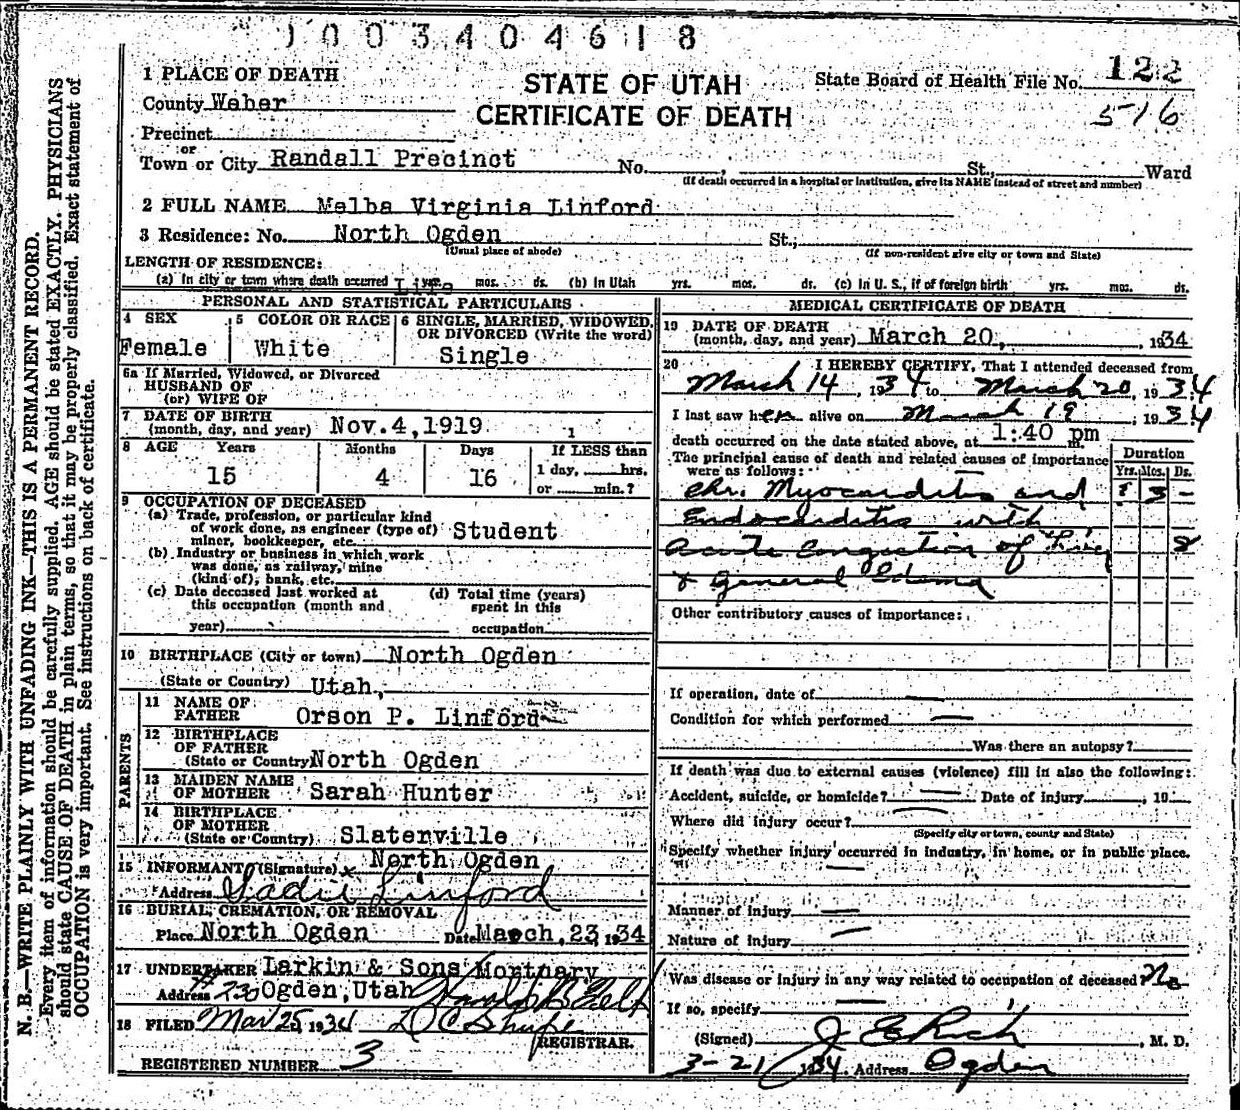 1003404618
1 PLACE OF DEATH
STATE OF UTAH
State Board of Health File No. 122
County Weber
CERTIFICATE OF DEATH
516
Precinct
or
Town or City Randall Precinct No. , St., Ward
(If death occurred in a hospital or institution, give its NAME instead of street and number)
2 FULL NAME Melba Virginia Linford
3 Residence: No. North Ogden St.,
(Usual place of abode) (If non-resident give city or town and State)
LENGTH OF RESIDENCE:
(a) In city or town where death occurred Life yrs. mos. ds. (b) In Utah yrs. mos. ds. (c) In U. S., if of foreign birth yrs. mos. ds.
PERSONAL AND STATISTICAL PARTICULARS
4 SEX
Female
5 COLOR OR RACE
White
6 SINGLE, MARRIED, WIDOWED,
OR DIVORCED (Write the word)
Single
6a If Married, Widowed, or Divorced
HUSBAND OF
(or) WIFE OF
7 DATE OF BIRTH
(month, day, and year) Nov. 4, 1919
8 AGE Years Months Days If LESS than
15 4 16 1 day, hrs.
or min.?
9 OCCUPATION OF DECEASED
(a) Trade, profession, or particular kind
of work done, as engineer (type of)
miner, bookkeeper, etc. Student
(b) Industry or business in which work
was done, as railway, mine
(kind of), bank, etc.
(c) Date deceased last worked at
this occupation (month and
year)
(d) Total time (years)
spent in this
occupation
10 BIRTHPLACE (City or town) North Ogden
(State or Country) Utah,
PARENTS
11 NAME OF
FATHER Orson P. Linford
12 BIRTHPLACE
OF FATHER
(State or Country) North Ogden
13 MAIDEN NAME
OF MOTHER Sarah Hunter
14 BIRTHPLACE
OF MOTHER
(State or Country) Slaterville
North Ogden
15 INFORMANT (Signature) x
Address Sadie Linford
16 BURIAL, CREMATION, OR REMOVAL
Place North Ogden Date March, 23, 1934
17 UNDERTAKER Larkin & Sons Mortuary
Address #230 Ogden, Utah Harold B
18 FILED Mar 25, 1934 D C Shupe
REGISTRAR.
REGISTERED NUMBER 3
MEDICAL CERTIFICATE OF DEATH
19 DATE OF DEATH
(month, day, and year) March 20, , 1934
20 I HEREBY CERTIFY, That I attended deceased from
March 14, 1934 to March 20, 1934
I last saw her alive on March 19, 1934
death occurred on the date stated above, at 1:40 pm m.
The principal cause of death and related causes of importance
were as follows:
Duration
Yrs. Mos. Ds.
Chr. Myocarditis and ? 3 -
Endocarditis with
Acute Congestion of 8
& General Edema
Other contributory causes of importance:
If operation, date of
Condition for which performed
Was there an autopsy?
If death was due to external causes (violence) fill in also the following:
Accident, suicide, or homicide? Date of injury , 19
Where did injury occur?
(Specify city or town, county and State)
Specify whether injury occurred in industry, in home, or in public place.
Manner of injury
Nature of injury
Was disease or injury in any way related to occupation of deceased No
If so, specify
(Signed) J E Rich , M. D.
3-21 1934. Address Ogden
N. B.—WRITE PLAINLY WITH UNFADING INK—THIS IS A PERMANENT RECORD.
Every item of information should be carefully supplied. AGE should be stated EXACTLY. PHYSICIANS
should state CAUSE OF DEATH in plain terms, so that it may be properly classified. Exact statement of
OCCUPATION is very important. See instructions on back of certificate.